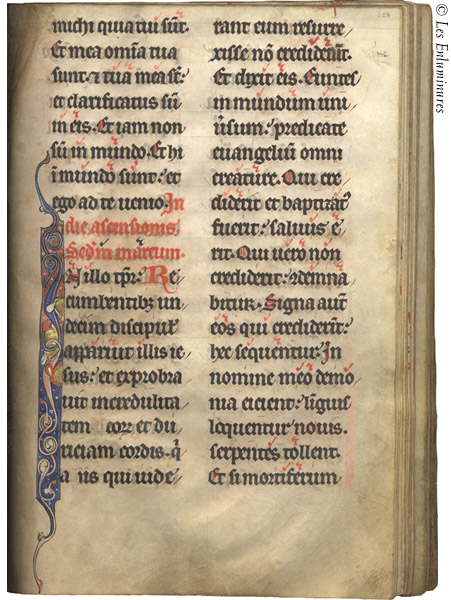 michi quia tui sūt.
Et mea omīa tua
sunt. ⁊ tua mea sē.
et clarificatus sū
in eis. Et iam non
sū in mūndo. Et hi
ī mundo sunt: et
ego ad te uenio. In
die ascensionis
Sedm marcum.
In illo tpr̄. Re
cumbentibꝫ un
decim discipul'
apparuit illis ie
sus: et exprobra
uit incredulita
tem cor et du
riciam cordis. q̄
a us qui uide
rant eum resurre
xisse nō credidert̄.
Et dixit eis. Euntes
in mundum uni
u'sum: predicate
euangeliū omni
creature. Qui cre
diderit et baptizat'
fuerit: saluus e
rit. Qui uero non
crediderit: ɔdemna
bitur. Signa aut̄
eos qui crediderīt:
hec sequentur. In
nomine meo demo
nia eicient: liguis
loquentur nouis.
serpentes tollent.
Et si mortiferum
© Les Enluminures